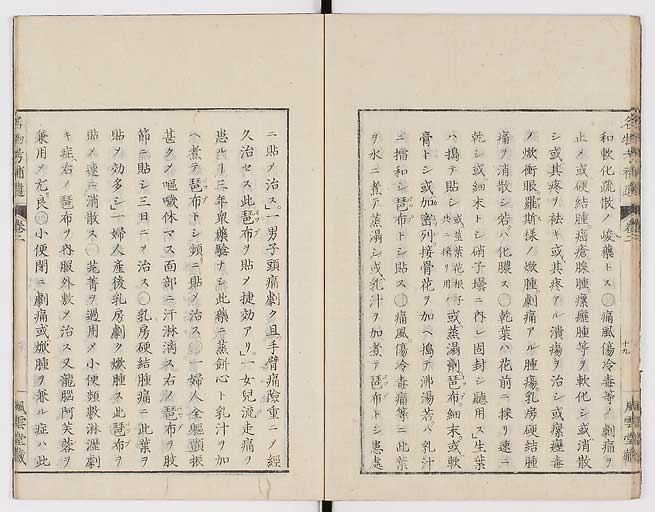 和軟化疏散ノ峻藥トス○痛風傷冷毒等ノ劇痛ヲ
止メ或硬結腫癌瘡腺腫瘰癧腫等ヲ軟化シ或消散
シ或其疼ヲ祛キ或其疼アル潰瘍ヲ治シ或瘰癧毒
ノ焮衝眼羅斯様ノ焮腫劇痛アル腫瘍乳房硬結腫
痛ヲ消散シ若バ化膿ス○乾葉ハ花前ニ採リ速ニ
乾シ或細末トシ硝子壜ニ內レ固封シ聽用ス生葉
ハ搗テ貼シ或莖葉花根子共ニ採リ用ル或蒸溻劑琶布細末或軟
膏トシ或加密列接骨花ヲ加ヘ搗テ沸湯若バ乳汁
ニ擂和シ琶布トシ貼ス○痛風傷冷毒痛等ニ此葉
ヲ水ニ煮テ蒸溻シ或乳汁ヲ加煮テ琶布トシ患處
名物考補遺
卷二
十九
風雲堂藏
ニ貼ノ治ス一男子頭痛劇ク且手臂痛險重ニノ經
久治セス此琶布ヲ貼メ捷効アリ一女兒流走痛ヲ
患ルー三年衆藥驗ナシ此藥ニ蒸餅心ト乳汁ヲ加
ヘ煮テ琶布トシ頻ニ貼ノ治ス○一婦人全軀顫振
甚タク嘔噦休マス面部ニ汗淋漓ス右ノ琶布ヲ肢
節ニ貼シ三日ニノ治ス○乳房硬結腫痛ニ此葉ヲ
貼ノ効多シ一婦人産後乳房劇ク焮腫ス此琶布ヲ
貼メ速ニ消散ス○芫菁ヲ過用ノ小便頻數淋瀝劇
キ症右ノ琶布ヲ內服外敷ノ治ス又龍腦阿芙蓉ヲ
兼用ノ尤良○小便閉ニ劇痛或焮腫ヲ兼ル症ハ此
名物考補遺
卷二
風雲堂藏